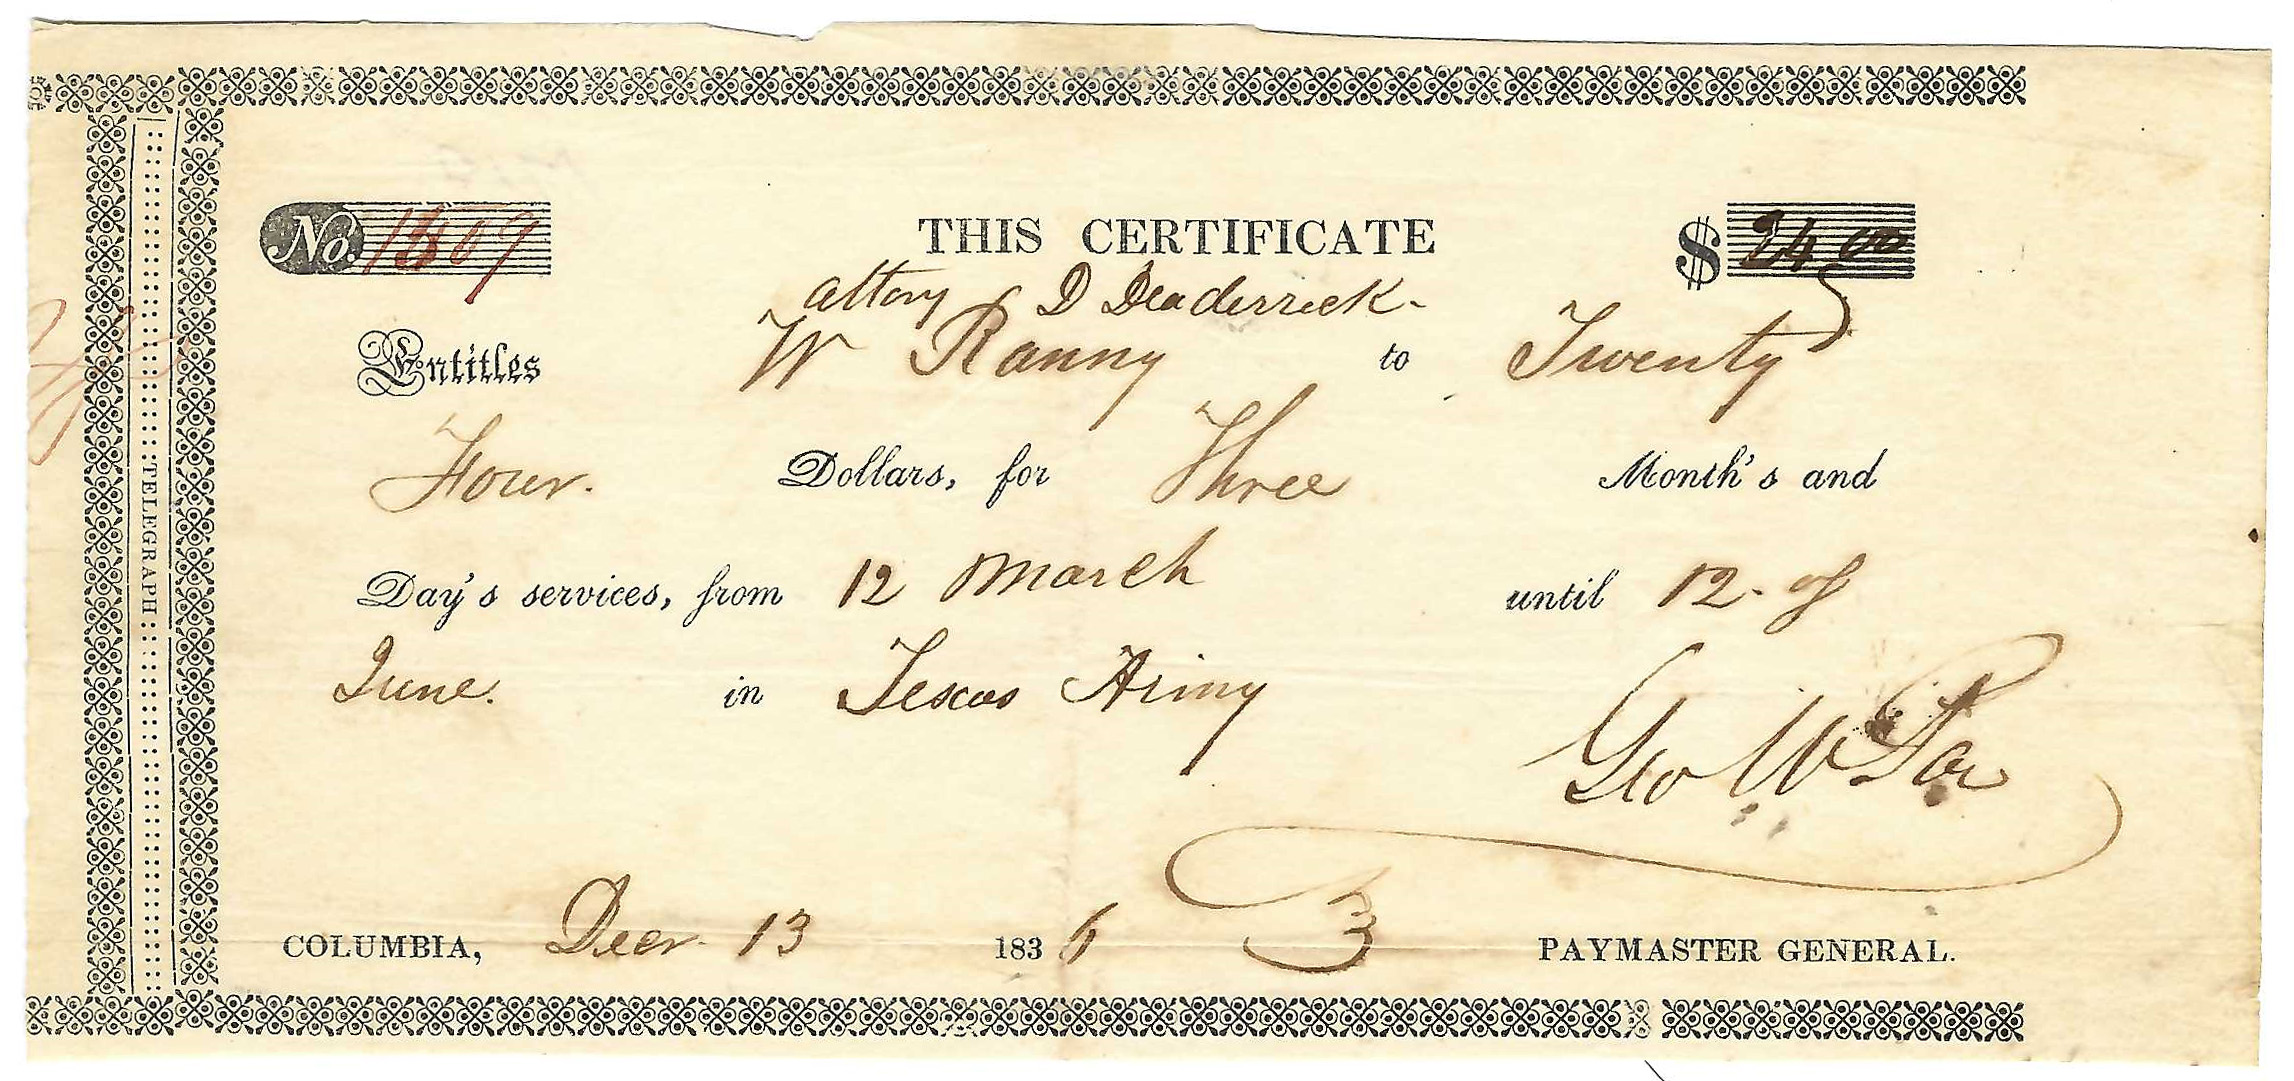 No. 1509
THIS CERTIFICATE
$ 24 00
attory D Deaderrick
Entitles W Ranny to Twenty
Four. Dollars, for Three Month's and
Day's services, from 12 March until 12. of
June. in Texas Army
Geo W Poe
COLUMBIA, Decr. 13 1836 PAYMASTER GENERAL.
TELEGRAPH